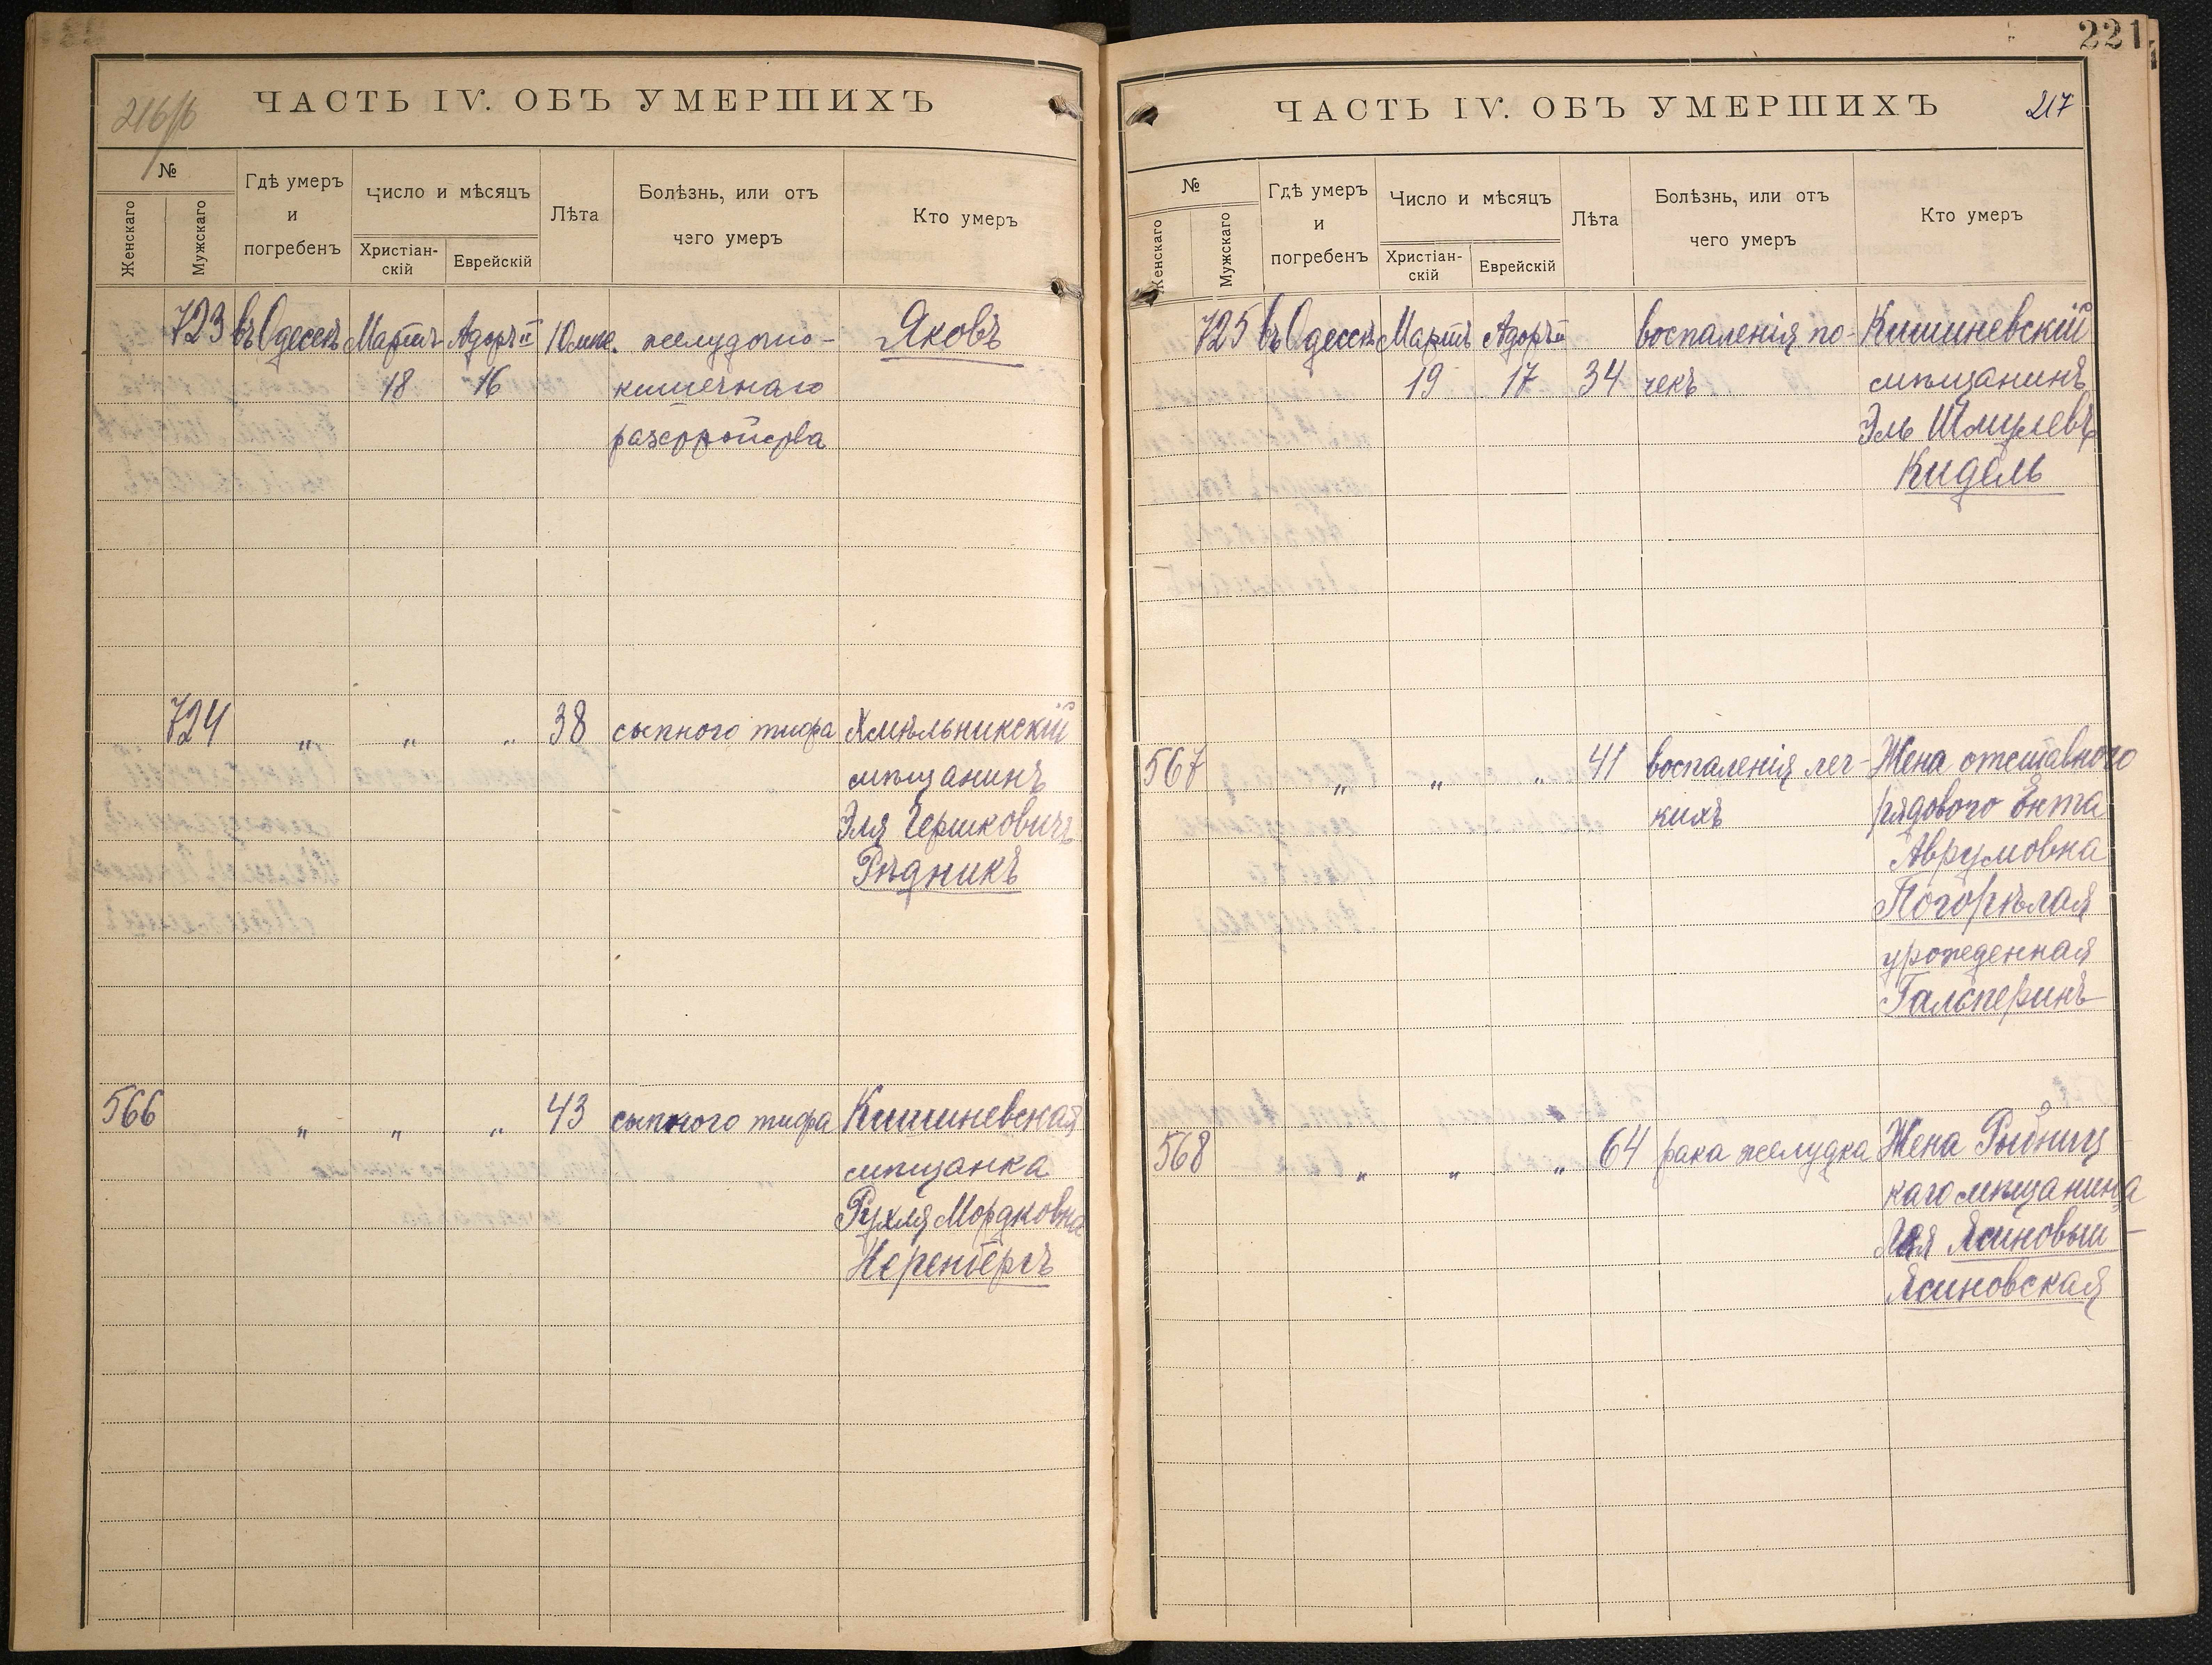 216/б
ЧАСТЬ IV. ОБЪ УМЕРШИХЪ
№
Женскаго
Мужскаго
Гдѣ умеръ
и
погребенъ
Число и мѣсяцъ
Христіан-
скій
Еврейскій
Лѣта
Болѣзнь, или отъ
чего умеръ
Кто умеръ
723 въ Одессѣ Мартъ Адоръ II 10 мѣс. желудочно- Яковъ
18 16 кишечнаго
разстройства
724 " " " 38 сыпного тифа Хмѣльникскій
мѣщанинъ
Эля Гершковичъ
Рѣдникъ
566 " " " 43 сыпного тифа Кишиневская
мѣщанка
Рухля Мордковна
Неренбергъ
221
ЧАСТЬ IV. ОБЪ УМЕРШИХЪ 217
№
Женскаго
Мужскаго
Гдѣ умеръ
и
погребенъ
Число и мѣсяцъ
Христіан-
скій
Еврейскій
Лѣта
Болѣзнь, или отъ
чего умеръ
Кто умеръ
725 въ Одессѣ Мартъ Адоръ II воспаленія по- Кишиневскій
19 17 34 чекъ мѣщанинъ
Эль Шмулевъ
Кидель
567 " " " 41 воспаленія лег- Жена отставного
кихъ рядового Ента
Аврумовна
Погорѣлая
урожденная
Гальперинъ
568 " " " 64 рака желудка Жена Рыбниц
каго мѣщанина
Хая Ясиновыи-
Ясиновская